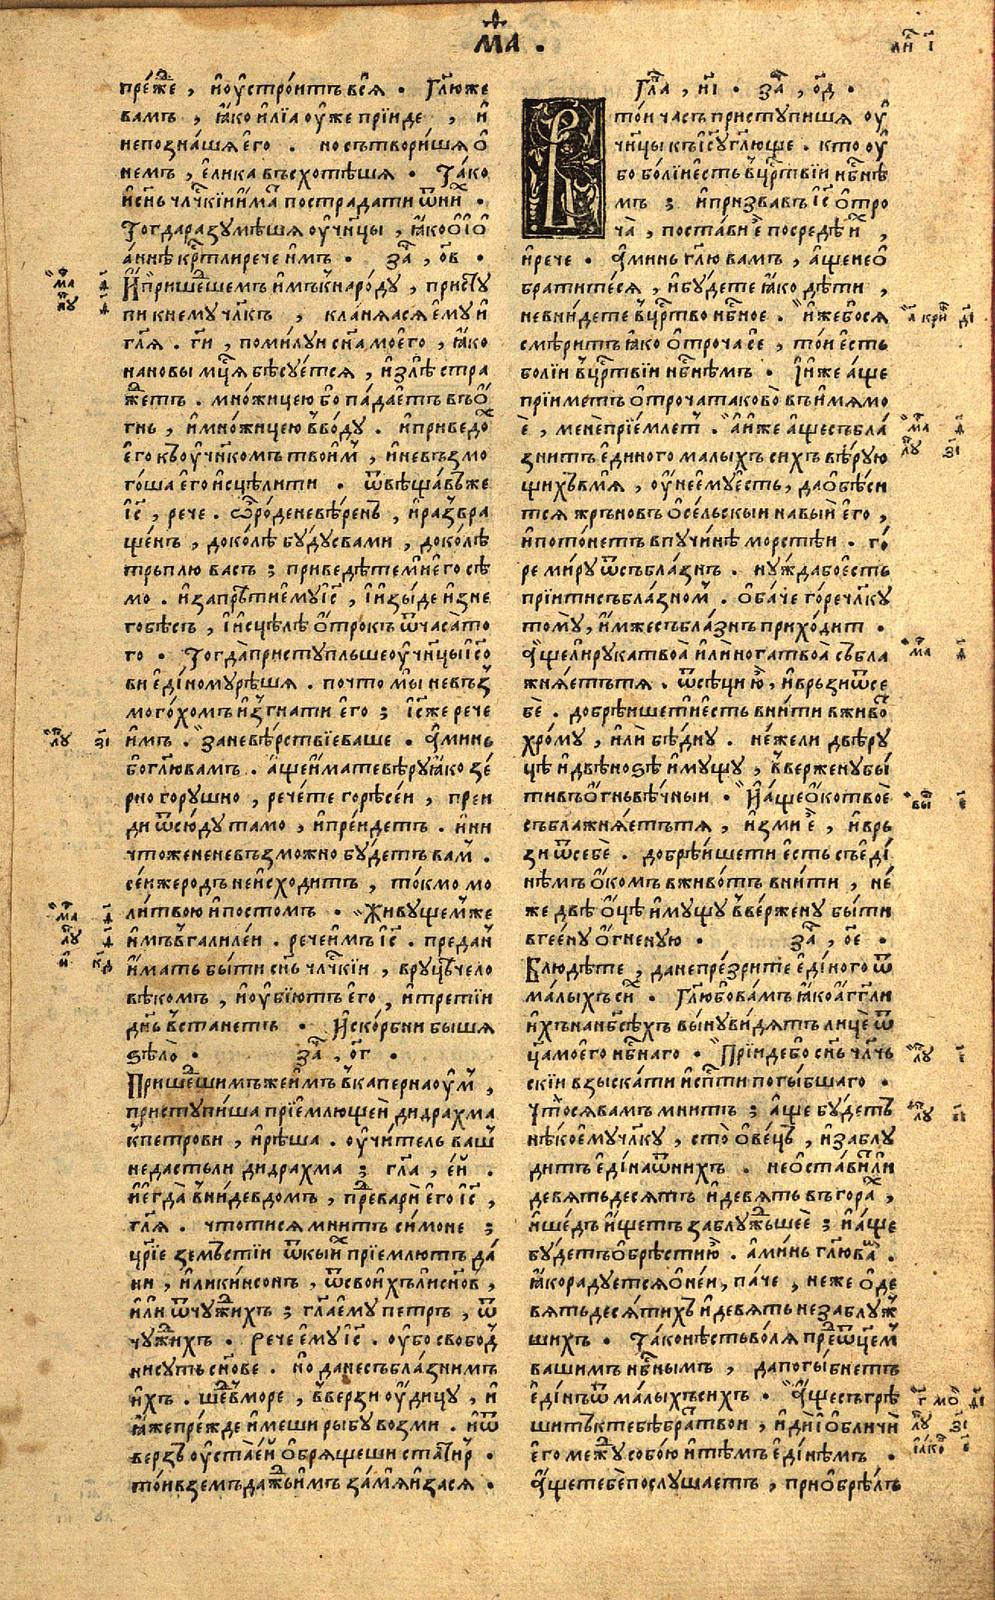 МА .
ли͠ ı҃
пре́же , и҆ оу҆строитъ всѧ̀ . Гл҃ю же
вамъ , ꙗ҆ко и҆лїа оу҆же прїиде , и҆
непозна́шѧ є҆го̀ . но сътвори́шѧ ѻ҆
немъ , є҆лика въсхотѣ́шѧ . Та́ко
и҆ сн҃ъ чл҃чкїи и҆́мат пострадати ѿ ни́х .
Тогда разꙋмѣ́шѧ оу҆чн҃цы , ꙗ҆ко ѻ҆ їѻ҆
а́ннѣ кр҃тли рече и҆мъ . За , ѻ҃в .
И҆ пришешемъ и҆мъ к нарѻ́дꙋ , пристꙋ
пи к немꙋ чл҃къ , кланѧ́ѧсѧ є҆мꙋ и҆
гл҃ѧ . гн҃и , поми́лꙋи сн҃а моего̀ , ꙗ҆ко
на новы мц҃ѧ бѣсꙋ́етсѧ , и҆ злѣ стра
жетъ . мно́жицею бо па́даетъ въ ѻ҆́
гнь , и҆ мно́жицею в во́дꙋ . и҆ приведо́х
є҆го къ оу҆чнкомъ твои́м , и҆ невъзмо
гоша є҆го и҆сцѣли́ти . ѿвѣща́въ же
і҆с҃ , рече . ѽ роде невѣ́ренъ , и҆ развра
ще́нъ , доко́лѣ бꙋ́дꙋ с вами , доко́лѣ
трьплю̀ васъ ; приведѣ́те мнѣ є҆го сѣ
мо . и҆ запрѣти є҆мꙋ і҆с҃ , и҆ и҆зы́де и҆з не
го бѣсъ , и҆ и҆сцѣлѣ̀ ѻ҆́трокъ ѿ часа̀ то
го . Тогда̀ пристꙋпльше оу҆чн҃цы і҆с҃о
ви є҆ди́номꙋ рѣ́шѧ . почто мы̀ невъз
мого́хомъ и҆згнати є҆го ; і҆с҃ же рече
и҆мъ . за невѣ́рствїе ваше . а҆минь
бо гл҃ю вамъ . а҆ще и҆мате вѣ́рꙋ ꙗ҆ко зе́
рно горꙋшно , рече́те горѣ̀ се́и , преи
ди ѿсю́дꙋ тамо , и҆ пре́идетъ . и҆ ни
чтоже невъзмо́жно бꙋ́детъ вам .
се́и же родъ не и҆схо́дитъ , то́кмо мо
ли́твою и҆ постомъ . Живꙋ́щем же
и҆мъ в галилеи . рече и҆мъ і҆с҃ . предан
и҆́мать бы́ти сн҃ъ чл҃чкїи , в рꙋцѣ чело
вѣ́комъ , и҆ оу҆бїю́тъ є҆го , и҆ третїи
дн҃ь въстанетъ . И҆ ско́рбни бышѧ
ѕѣлѡ̀ . За , ѻ҃г .
Прише́шимъ же и҆мъ в капернаоу́м ,
пристꙋпи́ша прїе́млющеи дидрахма
к петрови , и҆ рѣ́ша . оу҆чи́тель ваш
не дастъ ли дидрахма ; гл҃а , є҆и .
и҆ є҆гда̀ вни́де в домъ , преварѝ є҆го і҆с҃ ,
гл҃ѧ . что ти сѧ мни́тъ си́моне ;
цр҃їе земстїи ѿ кы́х прїе́млютъ да́
ни , и҆ли кинсонъ , ѿ свои́хъ ли сн҃ов ,
и҆ли ѿ чꙋ́жихъ ; гл҃а є҆мꙋ петръ , ѿ
чꙋ́жихъ . Рече є҆мꙋ і҆с҃ . оу҆бо свобод
ни сꙋть сн҃ове . но да не съблазнимъ
и҆хъ . шед в море , вверзи оу҆дицꙋ , и҆
ꙗ҆же пре́жде и҆меши рыбꙋ возми . и҆ ѿ
верзъ оу҆ста̀ є҆и ѻ҆брѧ́щеши статир .
то́и вземъ даждь и҆мъ за мѧ̀ и҆ за сѧ .
Гла , и҃ı . За , ѻ҃д .
В то́и часъ пристꙋпишѧ оу҆
чн҃цы къ і҆с҃ꙋ гл҃юще . кто оу҆
бо бо́лїи єсть в црт҃вїи нб҃нѣ
мъ ; и҆ призвавъ і҆с҃ ѻ҆тро
ча̀ , поста́ви є҆ посредѣ̀ и҆́х ,
и҆ рече . а҆минь гл҃ю вамъ , а҆ще не ѻ҆
братите́сѧ , и҆ бꙋ́дете ꙗ҆ко дѣ́ти ,
не вни́дете в црт҃во нб҃ное . и҆же бо сѧ
смѣри́тъ ꙗ҆ко ѻ҆троча се̂ , то́и єсть
бо́лїи в црт҃вїи нб҃нѣмъ . И҆ и҆же а҆ще
прїиметъ ѻ҆троча таково̀ въ и҆́мѧ мо
є҆̀ , менѐ прїе́млет . а҆ и҆же а҆ще събла́
знитъ є҆ди́ного малыхъ сихъ вѣ́рꙋю
щихъ в мѧ , оу҆не є҆мꙋ́ єсть , да ѻ҆бѣ́си
тсѧ жръновъ ѻ҆се́льскыи на вы́и є҆го̀ ,
и҆ пото́нетъ в пꙋчи́нѣ морстѣ́и . го́
ре ми́рꙋ ѿ съблазнъ . нꙋ́жда бо єсть
прїити съблазном . ѻ҆ба́че го́ре чл҃кꙋ
томꙋ , и҆мже съблазнъ прихо́дит .
А҆ще ли рꙋка твоа̀ и҆лѝ нога твоа̀ събла
жнѧ́етъ тѧ . ѿсѣцѝ ю҆̀ , и҆ връзи ѿ се
бѐ . добрѣ́ише ти єсть вни́ти в живо́т
хро́мꙋ , и҆лѝ бѣ́днꙋ . не́жели двѣ рꙋ
цѣ̀ и҆ двѣ но́ѕѣ и҆мꙋщꙋ , вве́рженꙋ бы́
ти въ ѻ҆гнь вѣ́чныи . И҆ а҆ще ѻ҆ко твоѐ
съблажнѧ́етъ тѧ , и҆зми є҆̀ , и҆ връ
зи ѿ себѐ . добрѣ́ише ти єсть съ є҆ди́
нѣмъ ѻ҆́комъ в живо́тъ вни́ти , не́
же двѣ̀ ѻ҆́цѣ и҆мꙋщꙋ вве́рженꙋ бы́ти
в гее́нꙋ ѻ҆́гненꙋю . За , ѻ҃е .
Блюдѣ́те , да не пре́зрите є҆ди́ного ѿ
ма́лыхъ си́х . Гл҃ю бо вамъ ꙗ҆ко а҆гг҃ли
и҆́хъ на нб҃сѣхъ вы́нꙋ ви́дѧтъ лицѐ ѿ
ц҃а моего̀ нб҃наго . Прїиде бо сн҃ъ чл҃чь
скїи взыска́ти и҆ спсти погы́бшаго .
Что̀ сѧ вамъ мни́тъ ; а҆ще бꙋ́детъ
нѣ́коемꙋ чл҃кꙋ , сто̀ ѻ҆ве́цъ , и҆ заблꙋ
дитъ є҆ди́на ѿ нихъ . не ѻ҆ста́вит ли
де́вѧтьдесѧтъ и҆ де́вѧть въ гора́х ,
и҆ шедъ и҆́щетъ заблꙋ́жьшеѐ ; и҆ а҆ще
бꙋ́детъ ѻ҆брѣ́сти ю҆̀ . а҆минь гл҃ю вам .
ꙗ҆ко ра́дꙋетсѧ ѻ҆ не́и , па́че , неже ѻ҆ де
вѧтьдесѧ́тихъ и҆ де́вѧть незаблꙋ́ж
шихъ . Та́ко нѣсть во́лѧ пред ѿц҃ем
вашимъ нб҃нымъ , да погы́бнетъ
є҆ди́нъ ѿ ма́лыхъ сихъ . А҆ще съгрѣ
шитъ к тебѣ̀ братъ твои , и҆дѝ ѻ҆бличѝ
є҆го межꙋ собо́ю и҆ тѣмъ є҆ди́нѣмъ .
А҆ще тебѐ послꙋшаетъ , приѻ҆брѣ́лъ